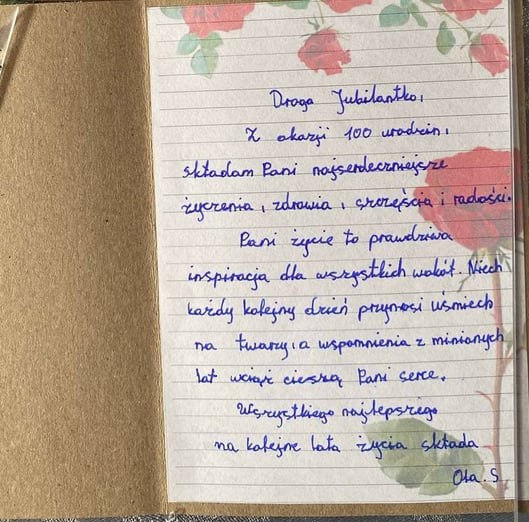 Droga Jubilantko,
Z okazji 100 urodzin,
składam Pani najserdeczniejsze
życzenia, zdrowia, szczęścia i radości.
Pani życie to prawdziwa
inspiracja dla wszystkich wokół. Niech
każdy kolejny dzień przynosi uśmiech
na twarzy, a wspomnienia z minianych
lat wciąż cieszą Pani serce.
Wszystkiego najlepszego
na kolejne lata życia składa
Ola. S